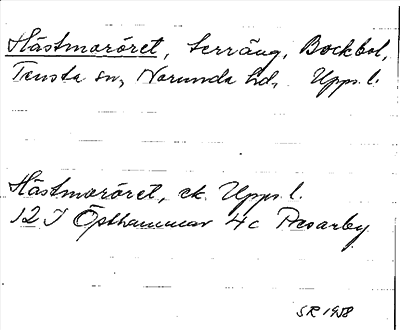 Hästmoröret, terräng, Bockbol,
Tensta sn, Norunda hd, Upps. l.
Hästmoröret, ek. Upps. l.
12 I Östhammar 4c Presarby
SR 1958